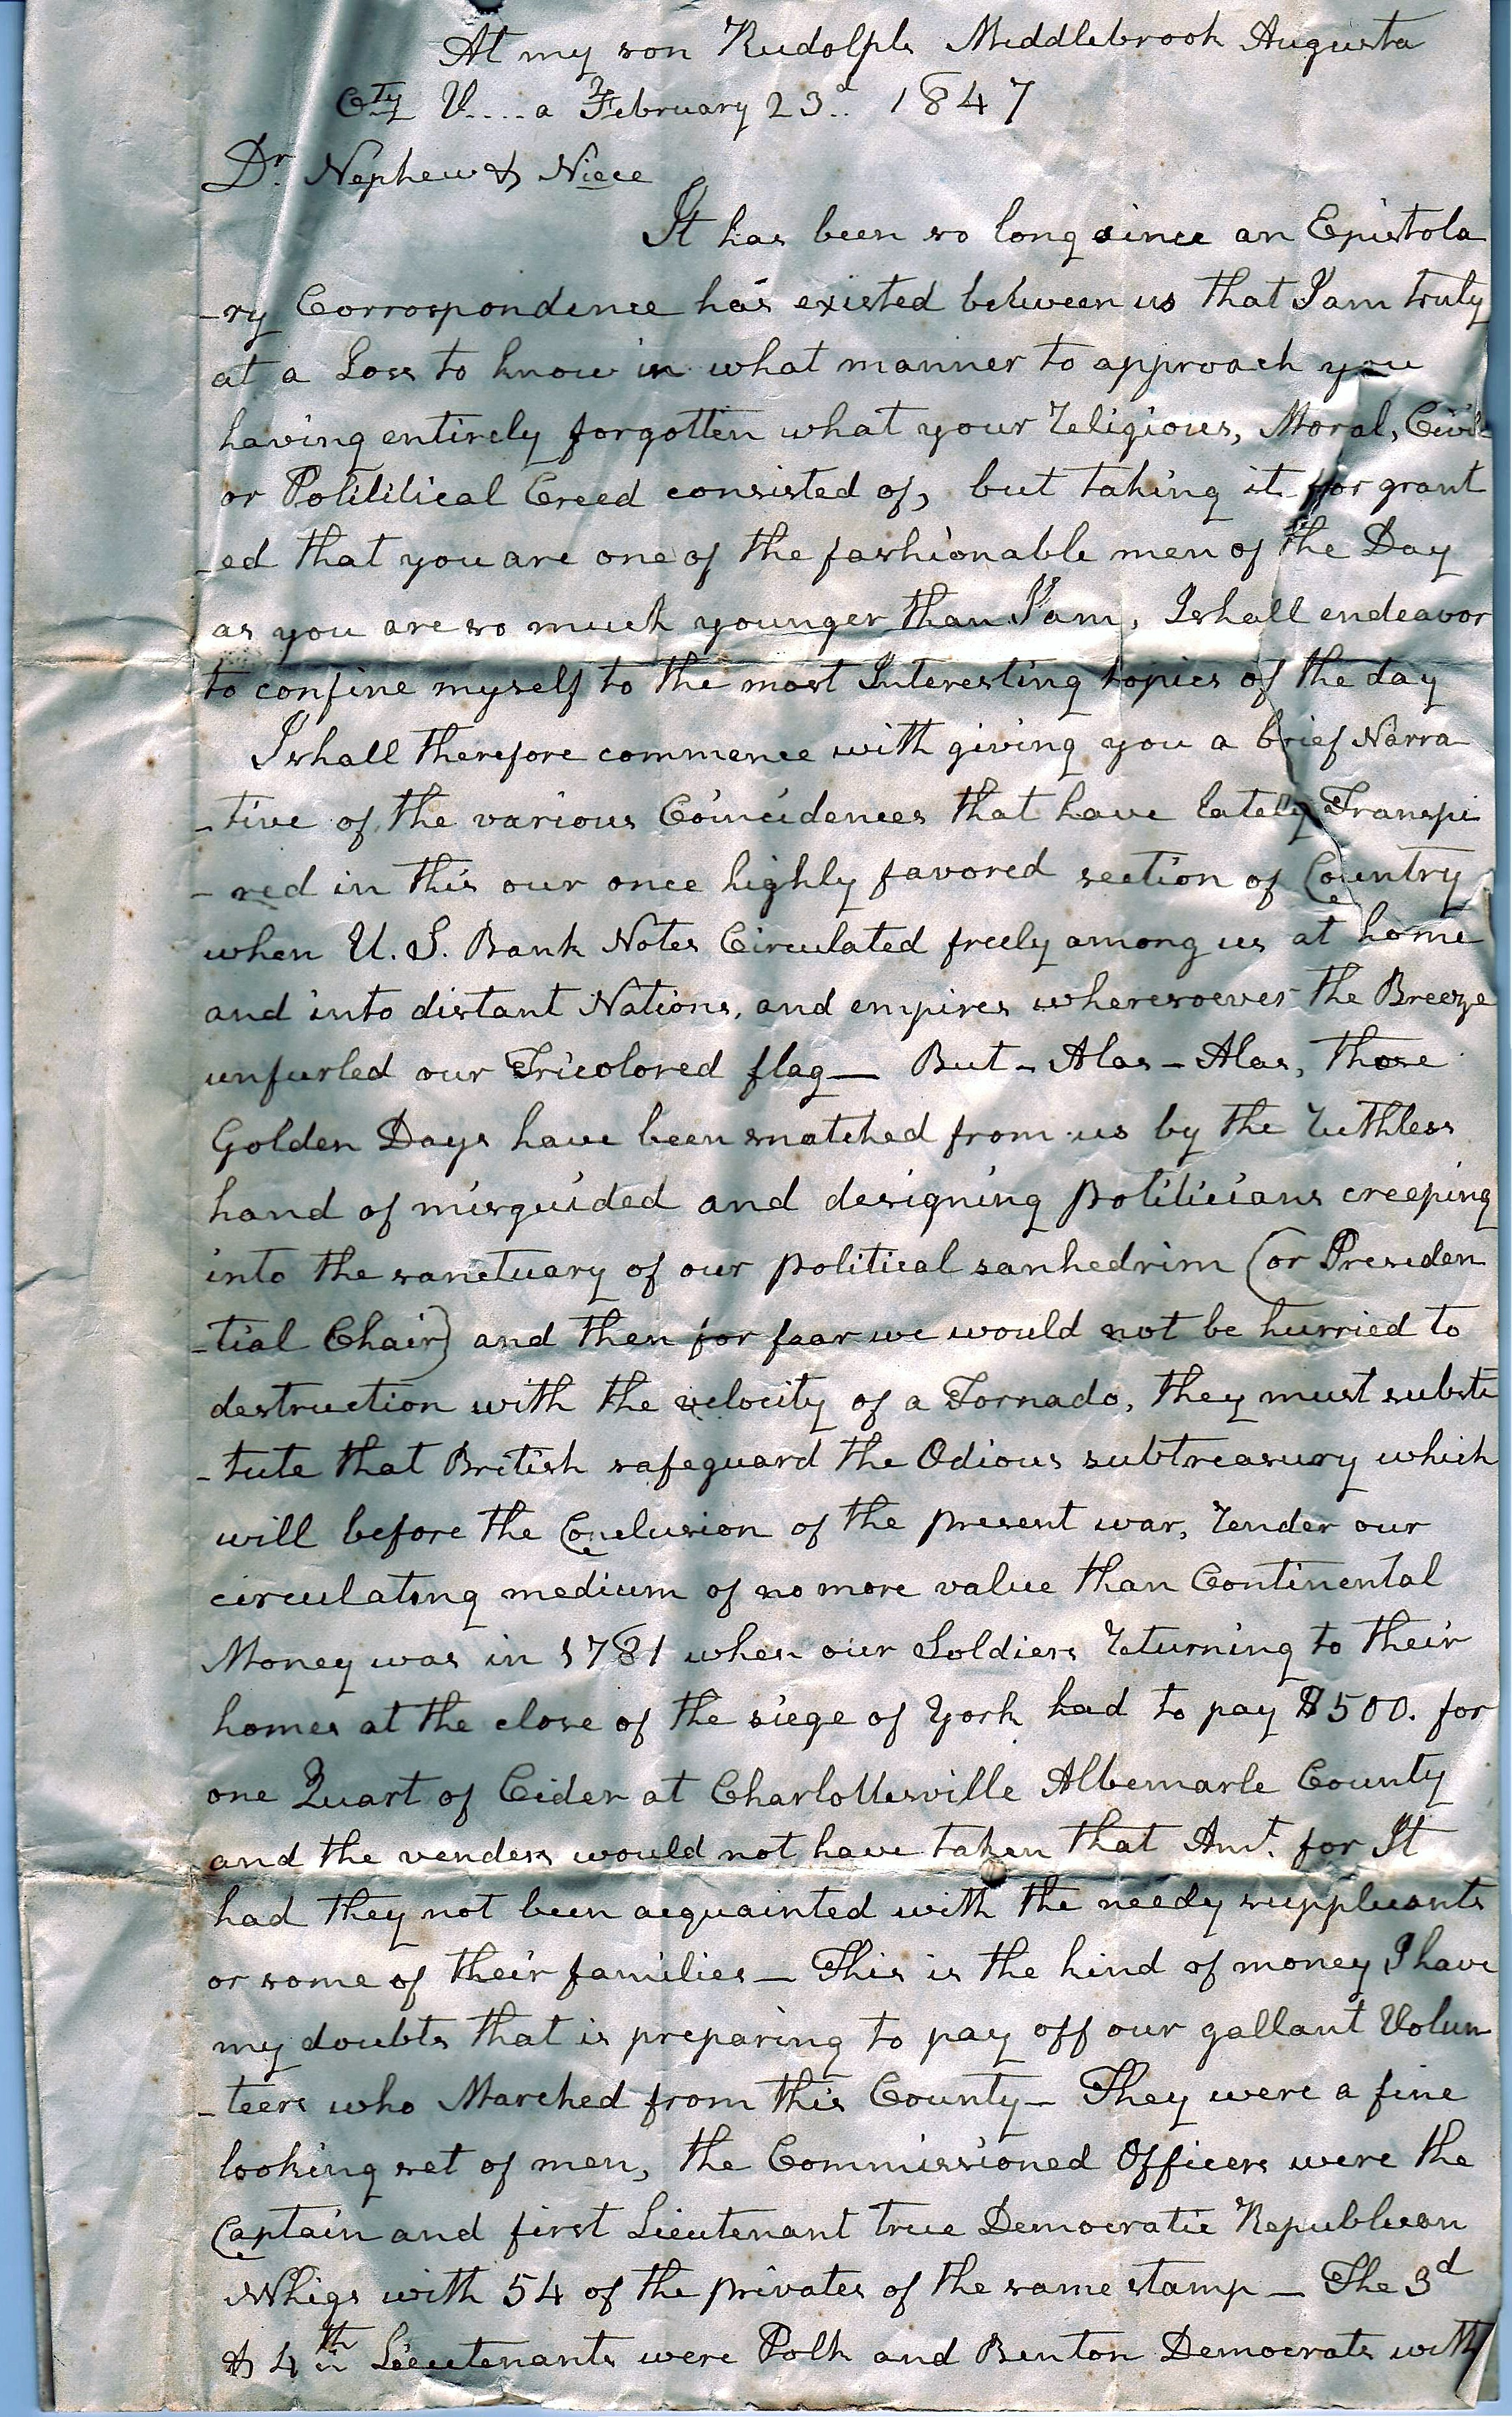 At my son Rudolph Middlebrook Augusta
Cty V....a February 23d.. 1847
Dr. Nephew & Niece
It has been so long since an Epistola
-ry Correspondence has existed between us that I am truly
at a Loss to know in what manner to approach you
having entirely forgotten what your Religious, Moral, Civil
or Polilitical Creed consisted of, but taking it for grant
-ed that you are one of the fashionable men of the Day
as you are so much younger than I am, I shall endeavor
to confine myself to the most Interesting topics of the day
I shall therefore commence with giving you a brief Narra
-tive of the various Coincidences that have lately Transpi
-red in this our once highly favored section of Country
when U. S. Bank Notes Circulated freely among us at home
and into distant Nations, and empires wheresoever the Breeze
unfurled our Tricolored flag — But - Alas - Alas, those
Golden Days have been snatched from us by the Ruthless
hand of misguided and designing politicians creeping
into the sanctuary of our political sanhedrim (or Presiden
-tial Chair) and then for faar we would not be hurried to
destruction with the velocity of a Tornado, they must substi
-tute that British safeguard the Odious subtreasury which
will before the Conclusion of the present war, Render our
circulating medium of no more value than Continental
Money was in 1781 when our Soldiers Returning to their
homes at the close of the siege of York had to pay $500. for
one Quart of Cider at Charlottesville Albemarle County
and the venders would not have taken that Amt. for It
had they not been acquainted with the needy suppliants
or some of their families — This is the kind of money I have
my doubts that is preparing to pay off our gallant Volun
-teers who Marched from this County — They were a fine
looking set of men, the Commissioned Officers were the
Captain and first Lieutenant true Democratic Republican
Whigs with 54 of the privates of the same stamp — The 3d
& 4th Lieutenants were Polk and Benton Democrats with